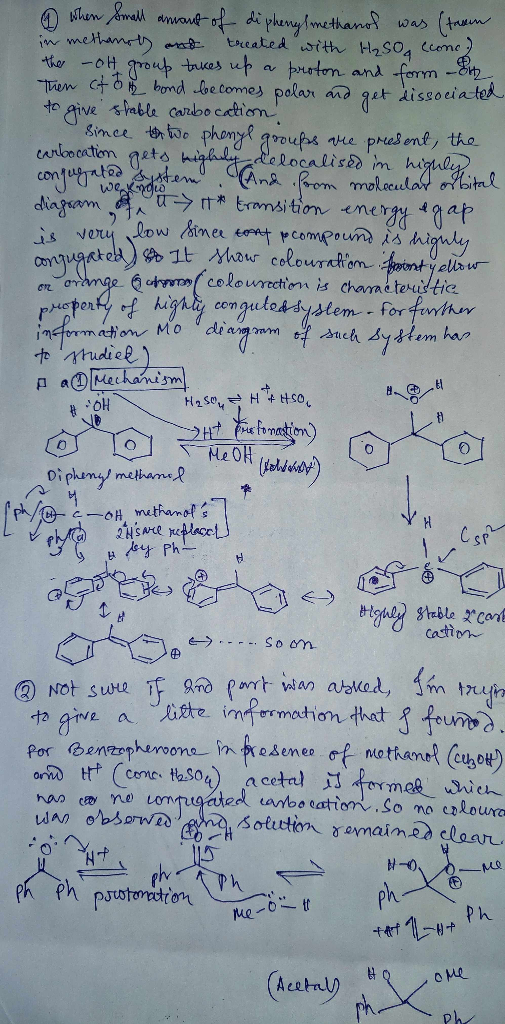 ① When small amount of diphenylmethanol was (taken
in methanol) treated with H2SO4 (conc)
the -OH group takes up a proton and form -OH2
Then C-OH2 bond becomes polar and get dissociated
to give stable carbocation.
Since two phenyl groups are present, the
carbocation gets highly delocalised in highly
conjugated system. (And from molecular orbital
diagram π → π* transition energy gap
is very low since compound is highly
conjugated) So It show colouration yellow
or orange (colouration is characteristic
property of highly conguted system - for further
information MO diangram of such system has
to studied)
a ① Mechanism
H2SO4 ⇌ H+ + HSO4
H :OH
H+ (Protonation)
MeOH (solvent)
H O H
H
Diphenyl methanol
[Ph H C - OH methanol's
2H's are replaced
by Ph -]
H
C sp2
H
Highly stable 2° carbo
cation
H
H
H
↔ ..... so on
② Not sure if 2nd part was asked, I'm tryin
to give a litte information that I found.
For Benzophenone in presence of methanol (CH3OH)
and H+ (conc. H2SO4) acetal is formed which
has no conjugated carbocation. So no coloura
was observed and solution remained clear.
:O: H+
Ph Ph
protonation
O-H
Ph Ph
Me-O-H
H-O H O-Me
Ph Ph
-H+
(Acetal)
HO OMe
Ph Ph